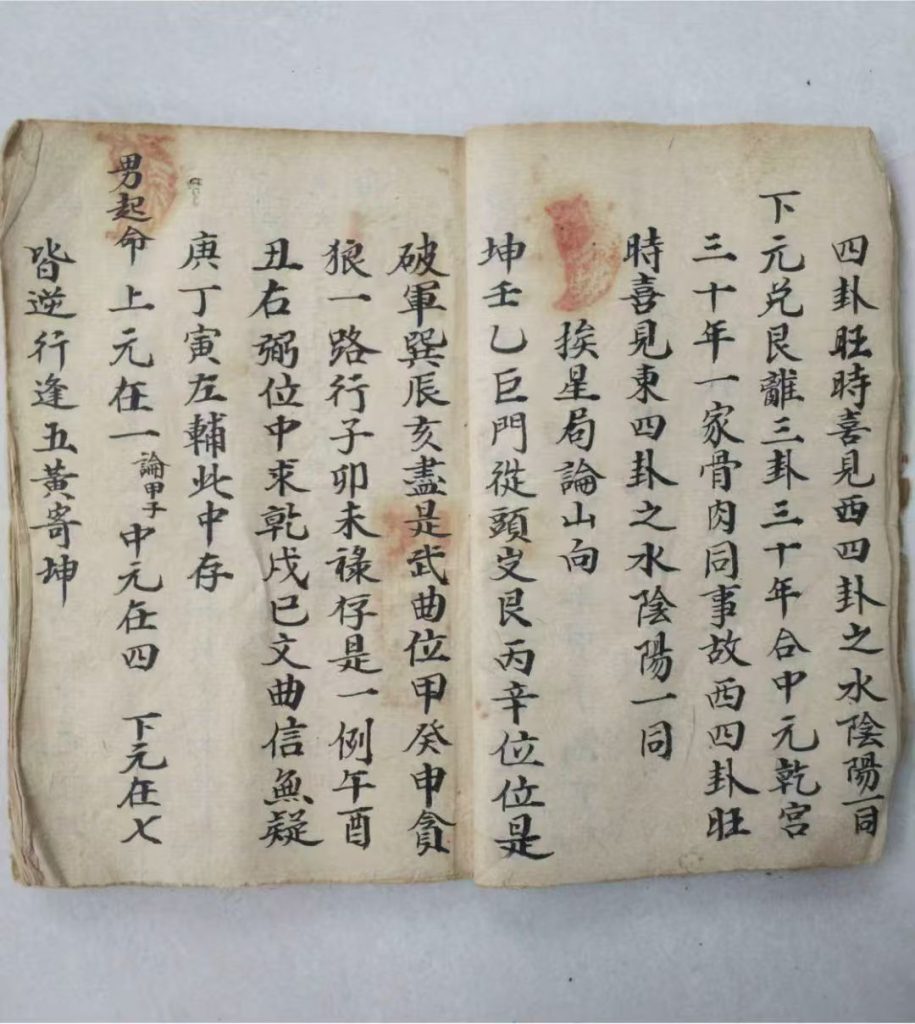 四卦旺時喜見西四卦之水陰陽一同
下元兑艮離三卦三十年合中元乾宮
三十年一家骨肉同事故西四卦旺
時喜見東四卦之水陰陽一同
挨星局論山向
坤壬乙巨門從頭艮丙辛位位是
破軍巽辰亥盡是武曲位甲癸申貪
狼一路行子卯未祿存是一例午酉
丑右弼位中求乾戌巳文曲信無疑
庚丁寅左輔此中存
男起命上元在一論甲子中元在四 下元在七
皆逆行逢五黃寄坤